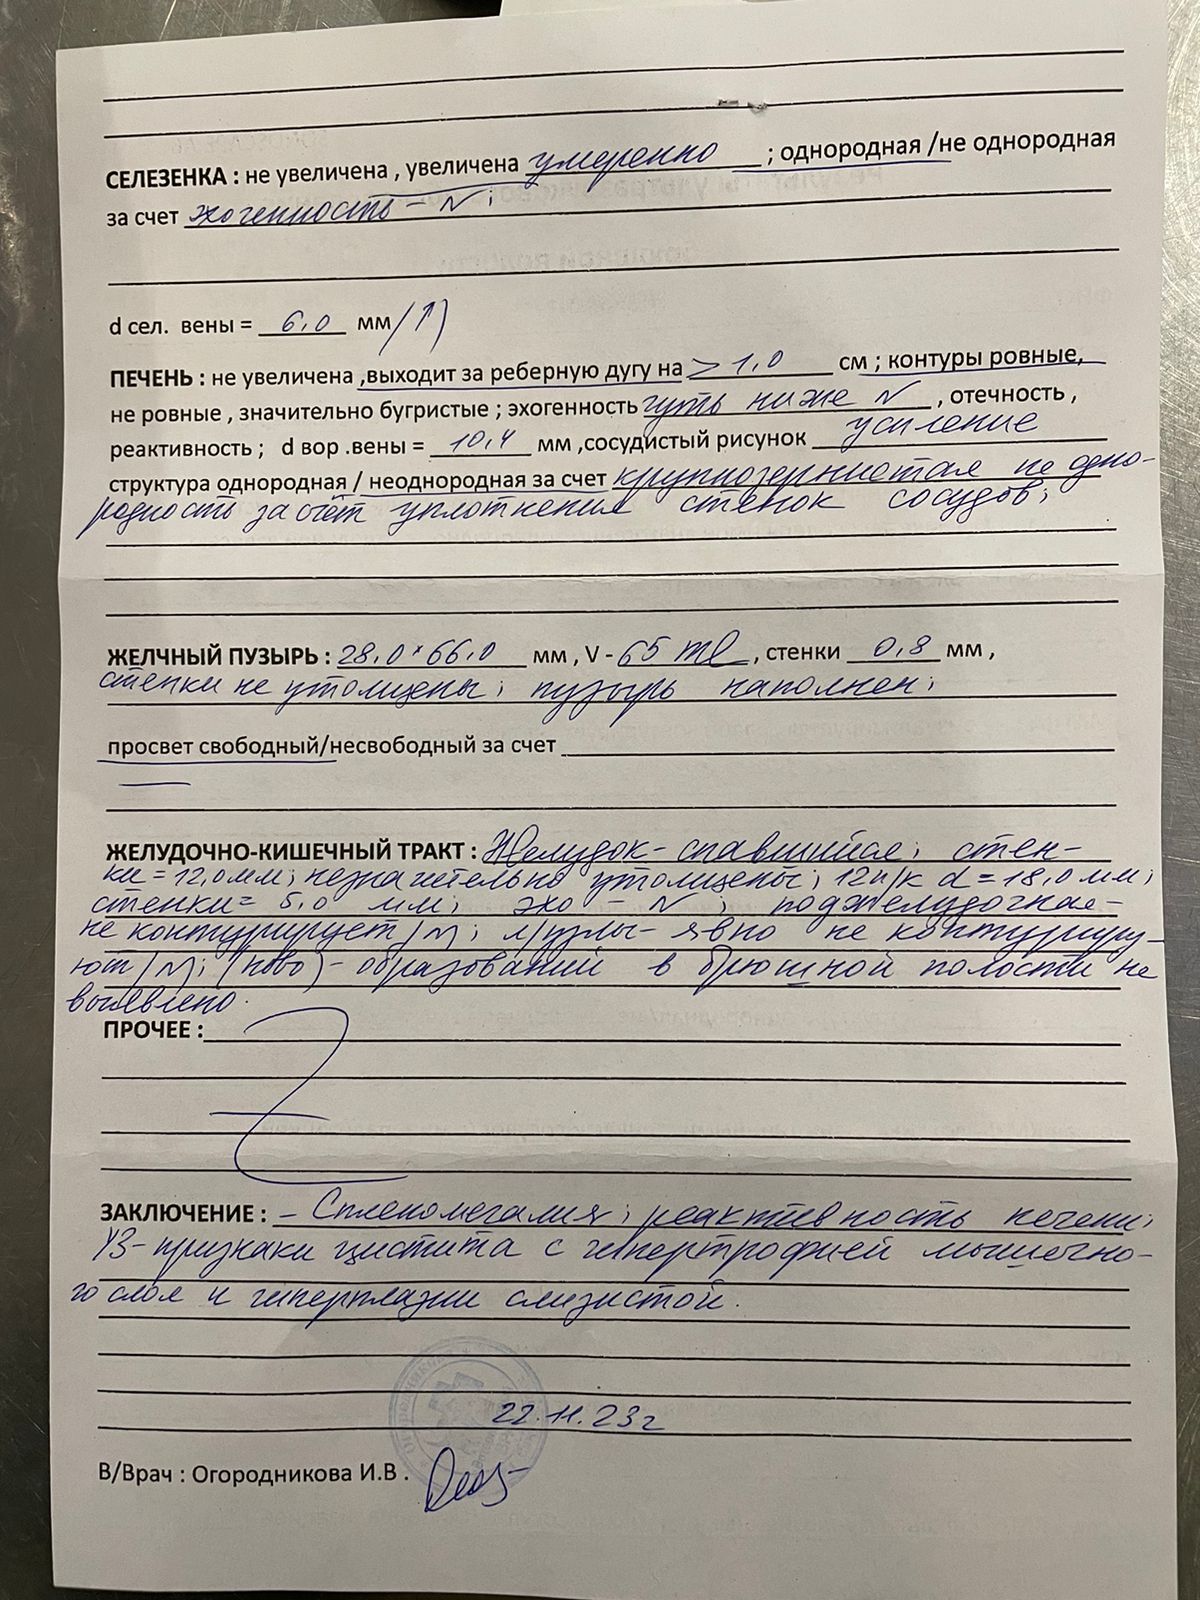 СЕЛЕЗЕНКА : не увеличена , увеличена умеренно ; однородная /не однородная
за счет эхогенность - N ;
d сел. вены = 6,0 мм /↑)
ПЕЧЕНЬ : не увеличена ,выходит за реберную дугу на > 1,0 см ; контуры ровные,
не ровные , значительно бугристые ; эхогенность чуть ниже N , отечность ,
реактивность ; d вор .вены = 10,4 мм ,сосудистый рисунок усиление
структура однородная / неоднородная за счет крупнозернистая не одно-
родность за счёт уплотнения стенок сосудов;
ЖЕЛЧНЫЙ ПУЗЫРЬ : 28,0 × 66,0 мм , V - 65 ml , стенки 0,8 мм ,
стенки не утолщены; пузырь наполнен;
просвет свободный/несвободный за счет
ЖЕЛУДОЧНО-КИШЕЧНЫЙ ТРАКТ : Желудок - спавшийся; стен-
ки = 12,0 мм; незначительно утолщены; 12п/к d = 18,0 мм;
стенки = 5,0 мм; эхо - N ; поджелудочная -
не контурирует /N; л/узлы - явно не контуриру-
ют /N; (ново) - образований в брюшной полости не
выявлено.
ПРОЧЕЕ :
ЗАКЛЮЧЕНИЕ : - Спленомегалия; реактивность печени;
УЗ-признаки цистита с гипертрофией мышечно-
го слоя и гиперплазии слизистой.
22.11.23г
В/Врач : Огородникова И.В .